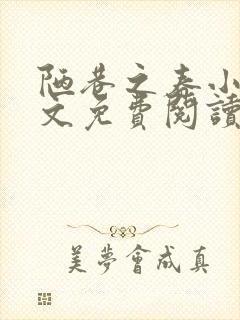 陋巷之春小
文免費閱讀
美夢會成真